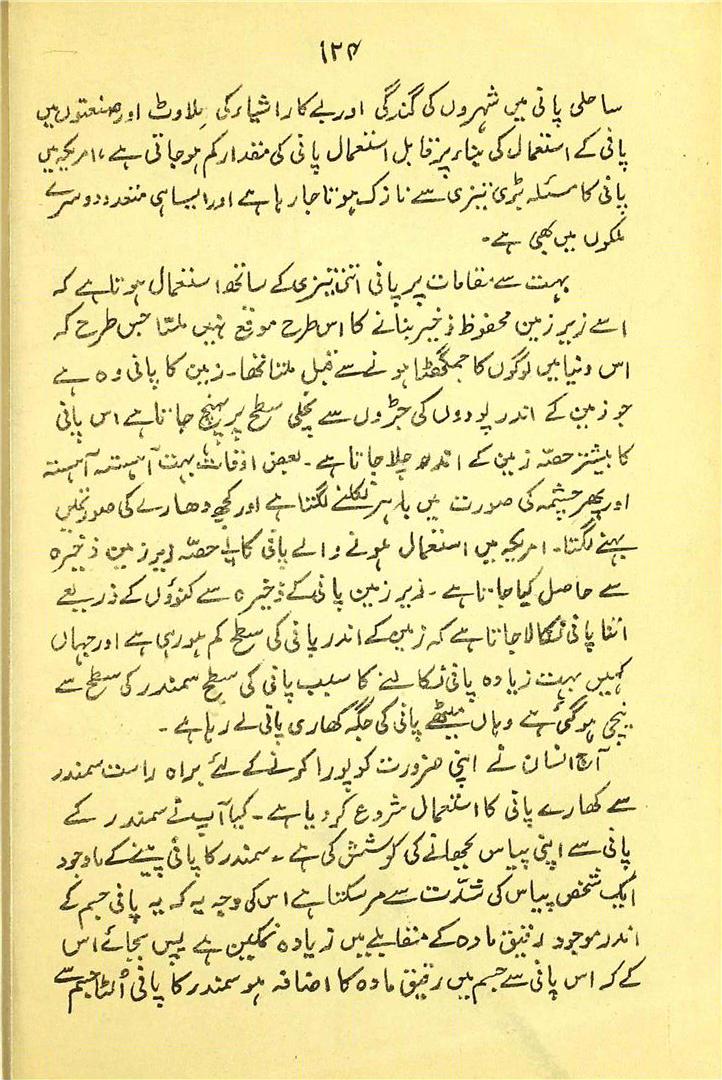 ۱۲۴
ساحلی پانی میں شہروں کی گندگی اور بے کار اشیاء کی ملاوٹ اور صنعتوں میں
پانی کے استعمال کی بناء پر قابل استعمال پانی کی مقدار کم ہو جاتی ہے، امریکہ میں
پانی کا مسئلہ بڑی تیزی سے نازک ہوتا جا رہا ہے اور ایسا ہی متعدد دوسرے
ملکوں میں بھی ہے۔
بہت سے مقامات پر پانی اتنی تیزی کے ساتھ استعمال ہوتا ہے کہ
اسے زیر زمین محفوظ ذخیر بنانے کا اس طرح موقع نہیں ملتا جس طرح کہ
اس دنیا میں لوگوں کا جمگھٹا ہونے سے قبل ملتا تھا۔ زمین کا پانی وہ ہے
جو زمین کے اندر پودوں کی جڑوں سے نچلی سطح پر پہنچ جاتا ہے اس پانی
کا بیشتر حصہ زمین کے اندر چلا جاتا ہے۔ بعض اوقات بہت آہستہ آہستہ
اور پھر چشمہ کی صورت میں باہر نکلنے لگتا ہے اور کچھ دھارے کی صورت میں
بہنے لگتا۔ امریکہ میں استعمال ہونے والے پانی کا حصہ زیر زمین ذخیرہ
سے حاصل کیا جاتا ہے۔ زیر زمین پانی کے ذخیرہ سے کنوؤں کے ذریعے
اتنا پانی نکالا جاتا ہے کہ زمین کے اندر پانی کی سطح کم ہو رہی ہے اور جہاں
کہیں بہت زیادہ پانی نکالنے کا سبب پانی کی سطح سمندر کی سطح سے
نیچی ہو گئی ہے وہاں میٹھے پانی کی جگہ کھاری پانی لے رہا ہے۔
آج انسان نے اپنی ضرورت کو پورا کرنے کے لئے براہ راست سمندر
سے کھارے پانی کا استعمال شروع کر دیا ہے۔ کیا آپ نے سمندر کے
پانی سے اپنی پیاس بجھانے کی کوشش کی ہے۔ سمندر کا پانی پینے کے باوجود
ایک شخص پیاس کی شدّت سے مر سکتا ہے اس کی وجہ یہ کہ یہ پانی جسم کے
اندر موجود رقیق مادہ کے مقابلے میں زیادہ نمکین ہے پس بجائے اس
کے کہ اس پانی سے جسم میں رقیق مادہ کا اضافہ ہو سمندر کا پانی اُلٹا جسم سے